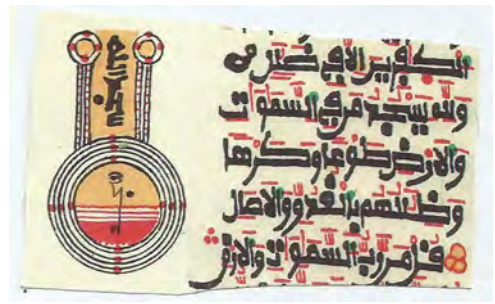 الكفرين الا في ضلل
ولله يسجد من في السموت
والارض طوعا وكرها
وظللهم بالغدو والاصال
قل من رب السموت والارض